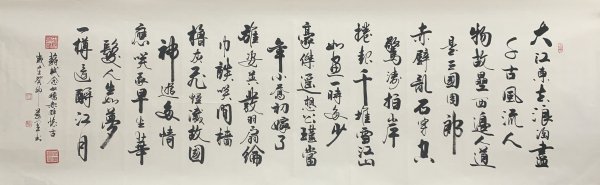 大江東去浪淘盡
千古風流人
物故壘西邊人道
是三國周郎
赤壁亂石穿空
驚濤拍岸
捲起千堆雪江山
如畫一時多少
豪傑遙想公瑾當
年小喬初嫁了
雄姿英發羽扇綸
巾談笑間檣
櫓灰飛煙滅故國
神遊多情
應笑我早生華
髮人生如夢
一樽還酹江月
蘇軾念奴嬌赤壁懷古